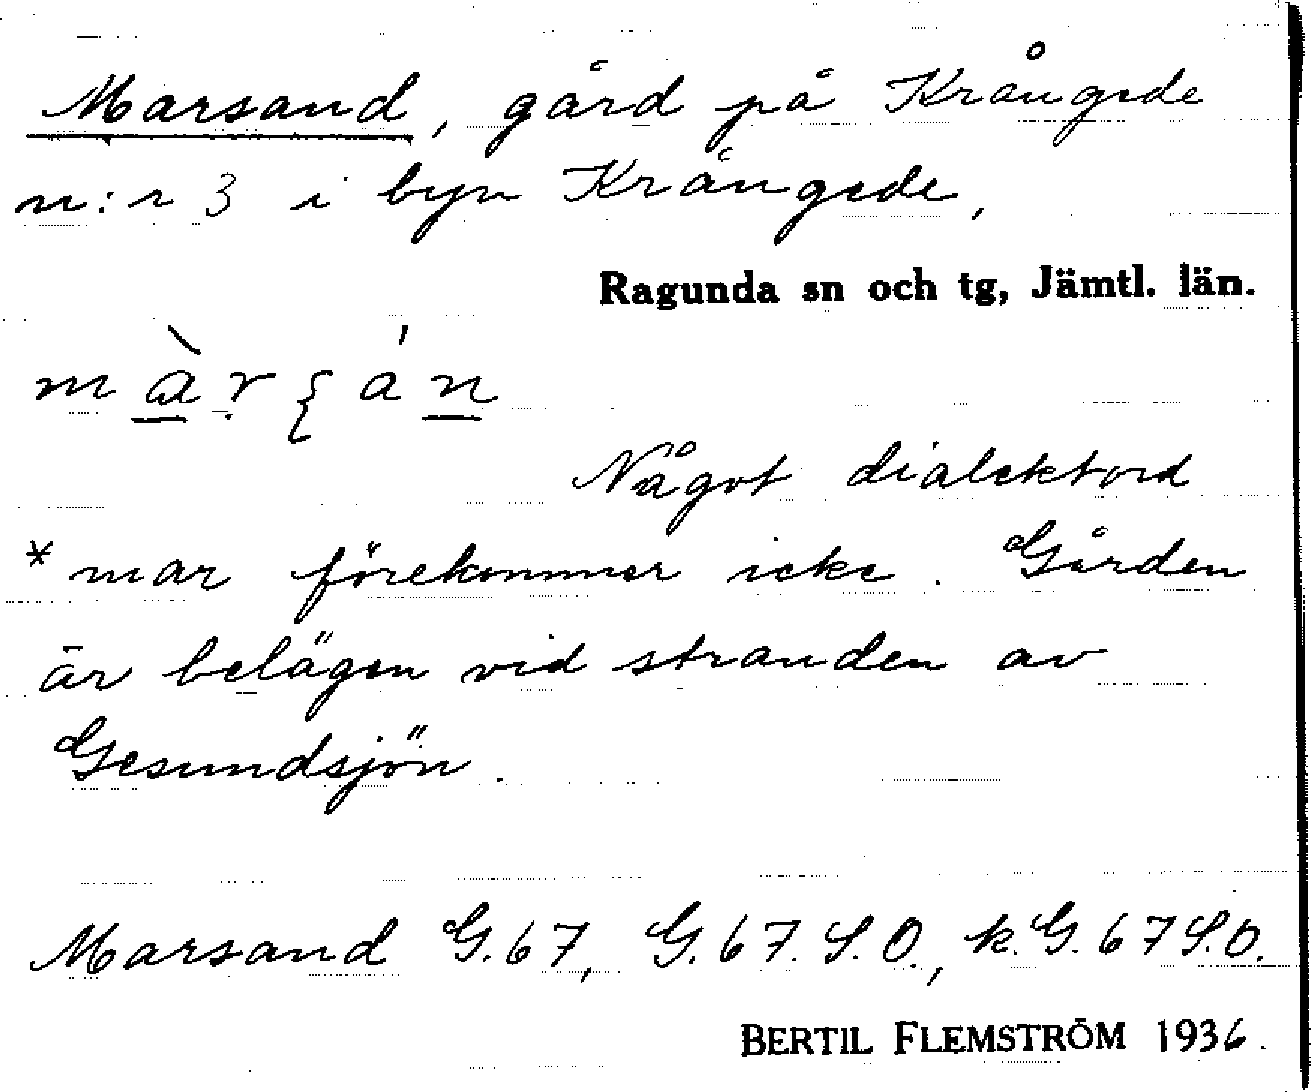 Marsand, gård på Krångede
n:r 3 i byn Krångede,
Ragunda sn och tg, Jämtl. län.
Något dialektord
*mar förekommer icke. Gården
är belägen vid stranden av
Gesundsjön.
Marsand G.67, G.67.S.O., k.G.67S.O.
BERTIL FLEMSTRÖM 1936.